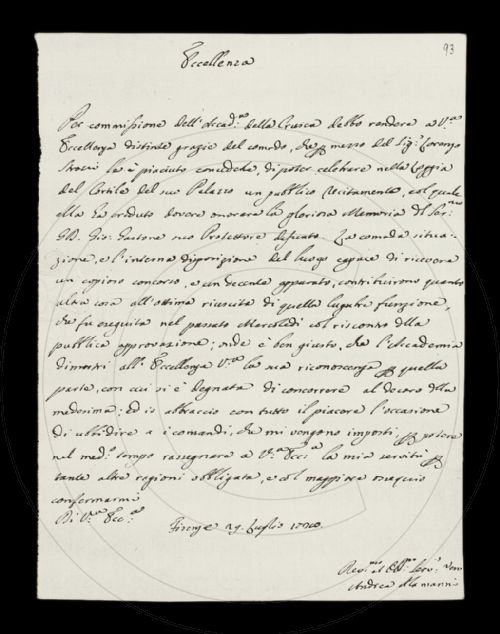 93
Eccellenza
Per commissione dell'Accad.ª della Crusca debbo rendere a V.ª
Eccellenza distinte grazie del comodo, che per mezzo del Sig.r Lorenzo
Strozzi le è piaciuto concederle, di poter celebrare nella Loggia
del Cortile del suo Palazzo un pubblico Recitamento, col quale
ella ha creduto dovere onorare la gloriosa Memoria del Ser.mo
GD. Gio: Gastone suo Protettore defunto. La comoda situa-
zione, e l'interna disposizione del luogo capace di ricevere
un copioso concorso, e un decente apparato, contribuirono quanto
altra cosa all'ottima riuscita di quella lugubre funzione,
che fu eseguita nel passato Mercoledì col riscontro della
pubblica approvazione; onde è ben giusto, che l'Accademia
dimostri all'Eccellenza V.ª la sua riconoscenza per quella
parte, con cui si è degnata di concorrere al decoro della
medesima; ed io abbraccio con tutto il piacere l'occasione
di ubbidire a i comandi, che mi vengono imposti per potere
nel med.º tempo rassegnare a V.ª Ecc.ª la mia servitù per
tante altre ragioni obbligata, e col maggiore ossequio
confermarmi
Di V.ª Ecc.ª
Firenze 29. Luglio
Dev.mo ed Obb.mo Serv.e Vero
Andrea Alamanni